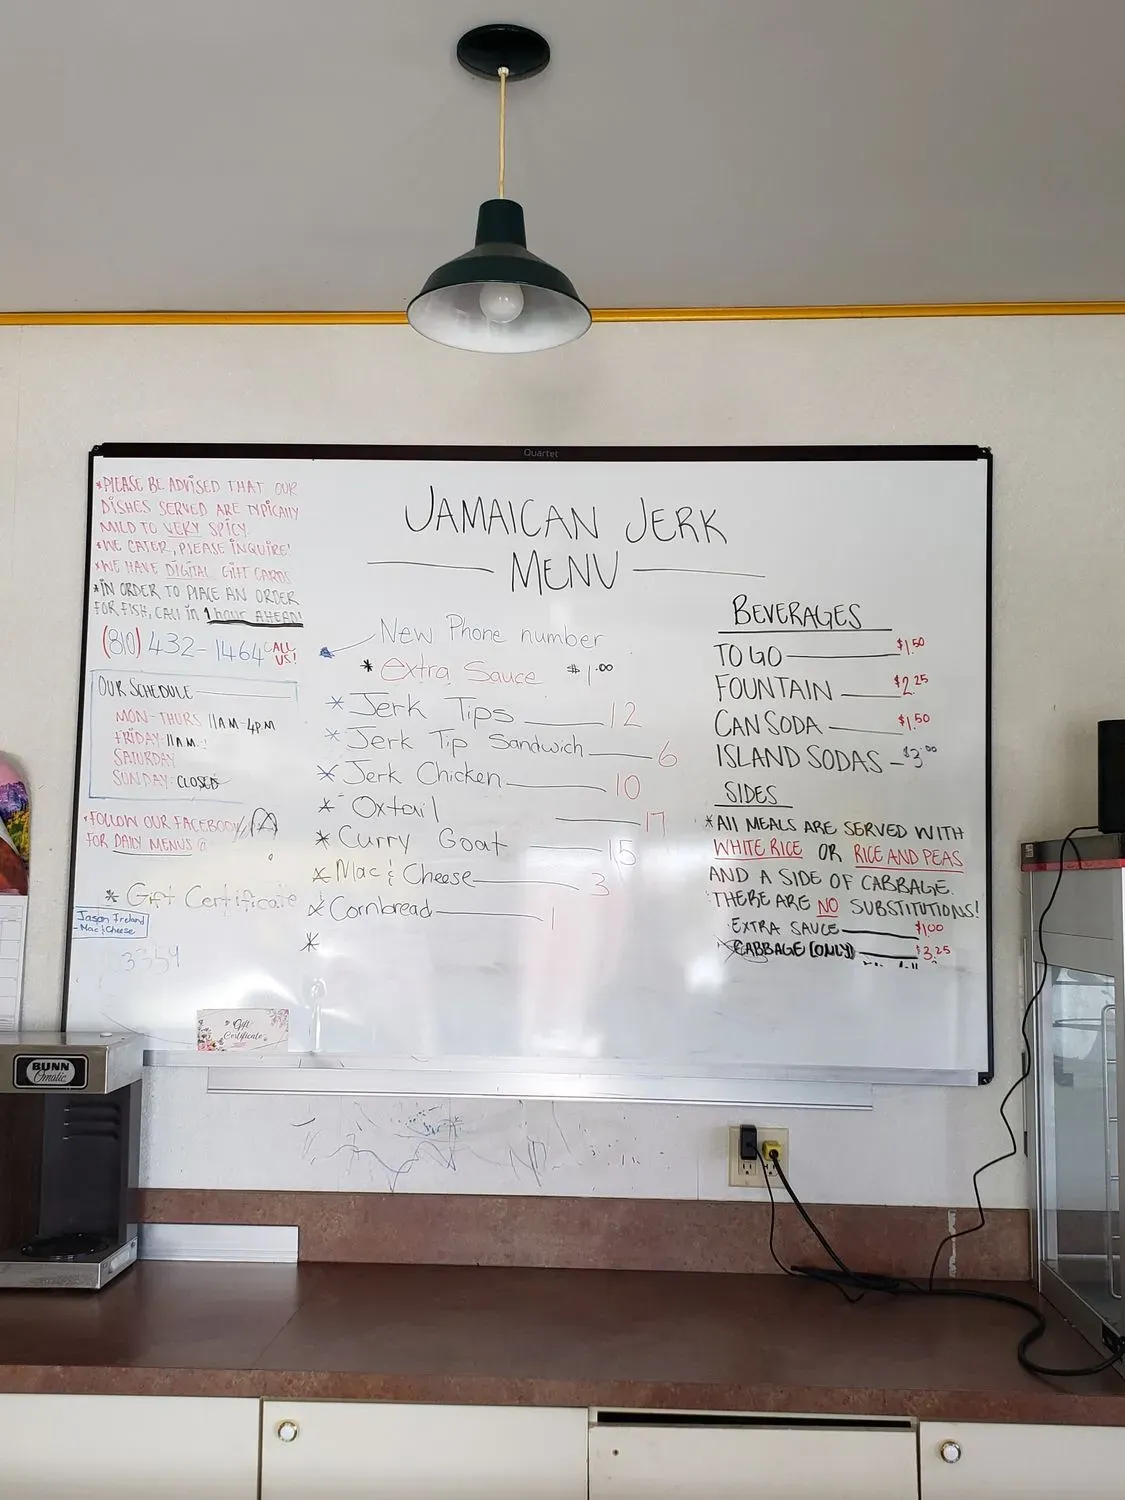 Quartet
*PLEASE BE ADVISED THAT OUR
DISHES SERVED ARE TYPICALLY
MILD TO VERY SPICY
*WE CATER, PLEASE INQUIRE!
*WE HAVE DIGITAL GIFT CARDS
*IN ORDER TO PLACE AN ORDER
FOR FISH, CALL IN 1 hour AHEAD!
(810) 432-1464 CALL US!
OUR SCHEDULE
MON-THURS 11AM-4PM
FRIDAY: 11AM-
SATURDAY
SUNDAY: CLOSED
*FOLLOW OUR FACEBOOK
FOR DAILY MENUS @
* Gift Certificate
Jason Ireland
- Mac & Cheese
3354
Gift
Certificate
JAMAICAN JERK
MENU
New Phone number
* extra Sauce $1.00
* Jerk Tips 12
* Jerk Tip Sandwich 6
* Jerk Chicken 10
* Oxtail 17
* Curry Goat 15
* Mac & Cheese 3
* Cornbread 1
*
BEVERAGES
TO GO $1.50
FOUNTAIN $2.25
CAN SODA $1.50
ISLAND SODAS $3.00
SIDES
*All MEALS ARE SERVED WITH
WHITE RICE OR RICE AND PEAS
AND A SIDE OF CABBAGE.
THERE ARE NO SUBSTITUTIONS!
EXTRA SAUCE $1.00
CABBAGE (ONLY) $3.25
BUNN
Omatic